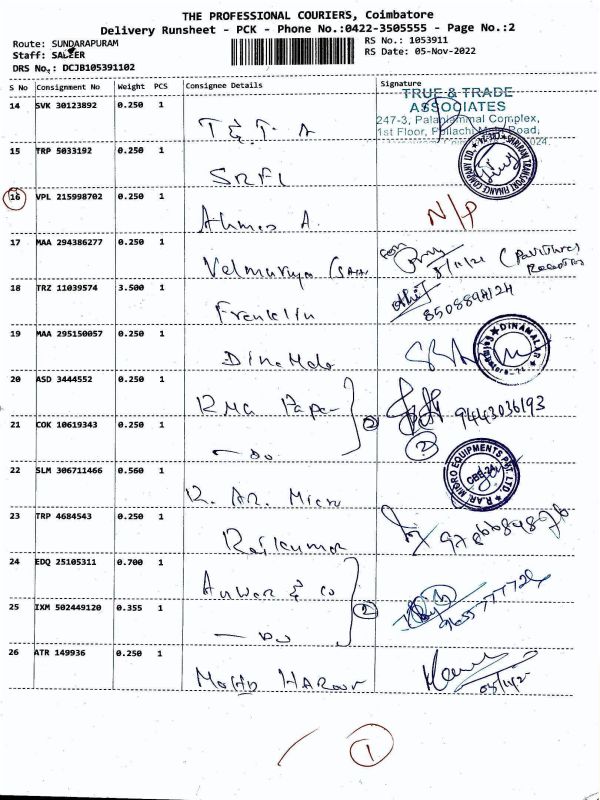 THE PROFESSIONAL COURIERS, Coimbatore
Delivery Runsheet - PCK - Phone No.:0422-3505555 - Page No.:2
Route: SUNDARAPURAM
RS No.: 1053911
Staff: SALEER
RS Date: 05-Nov-2022
DRS No.: DCJB105391102
S No Consignment No Weight PCS Consignee Details Signature
TRUE & TRADE
ASSOCIATES
14 SVK 30123892 0.250 1 T & T A
247-3, Palaniammal Complex,
1st Floor, Pollachi Main Road,
15 TRP 5033192 0.250 1 SRFL
SHRIRAM TRANSPORT FINANCE COMPANY LTD.
16 VPL 215998702 0.250 1 Ahmed A. N/P
17 MAA 294386277 0.250 1 Velmuruga
18 TRZ 11039574 3.500 1 Franklin
8508894124
19 MAA 295150057 0.250 1 Dinamala
DINAMALAR
20 ASD 3444552 0.250 1 RMG Paper 2 9443036193
21 COK 10619343 0.250 1 — Do 2
22 SLM 306711466 0.560 1 R. AR. Micro
R.AR. MICRO EQUIPMENTS PVT. LTD.
23 TRP 4684543 0.250 1 Rajkumar
24 EDQ 25105311 0.700 1 Anwar & Co 2
25 IXM 502449120 0.355 1 — Do
26 ATR 149936 0.250 1 Mohd Haroon
1